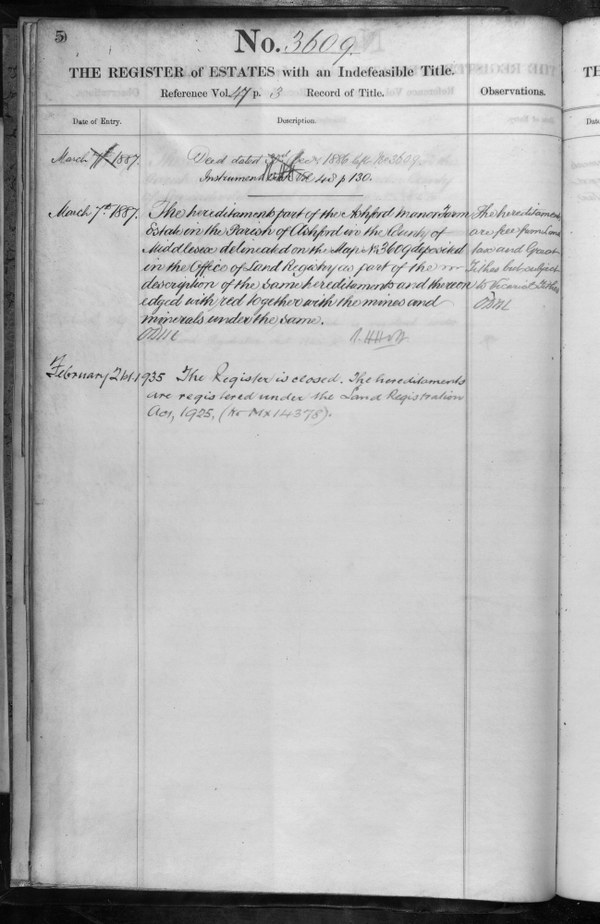 5
No. 3609.
THE REGISTER of ESTATES with an Indefeasible Title.
Reference Vol. 47 p. 3 Record of Title.
Observations.
Date of Entry.
Description.
March 7th 1887.
Deed dated 1886 No 3609
Instrument Vol 48 p 130.
March 7th 1887.
The hereditaments part of the Ashford Manor Farm
Estate in the Parish of Ashford in the County of
Middlesex delineated on the Map No 3609 deposited
in the Office of Land Registry as part of the
description of the same hereditaments and thereon
edged with red together with the mines and
minerals under the same.
The hereditaments
are free from Land
tax and Great
Tithes but subject
to Vicarial Tithes
February 21st 1935 The Register is closed. The hereditaments
are registered under the Land Registration
Act, 1925, (No Mx14378).